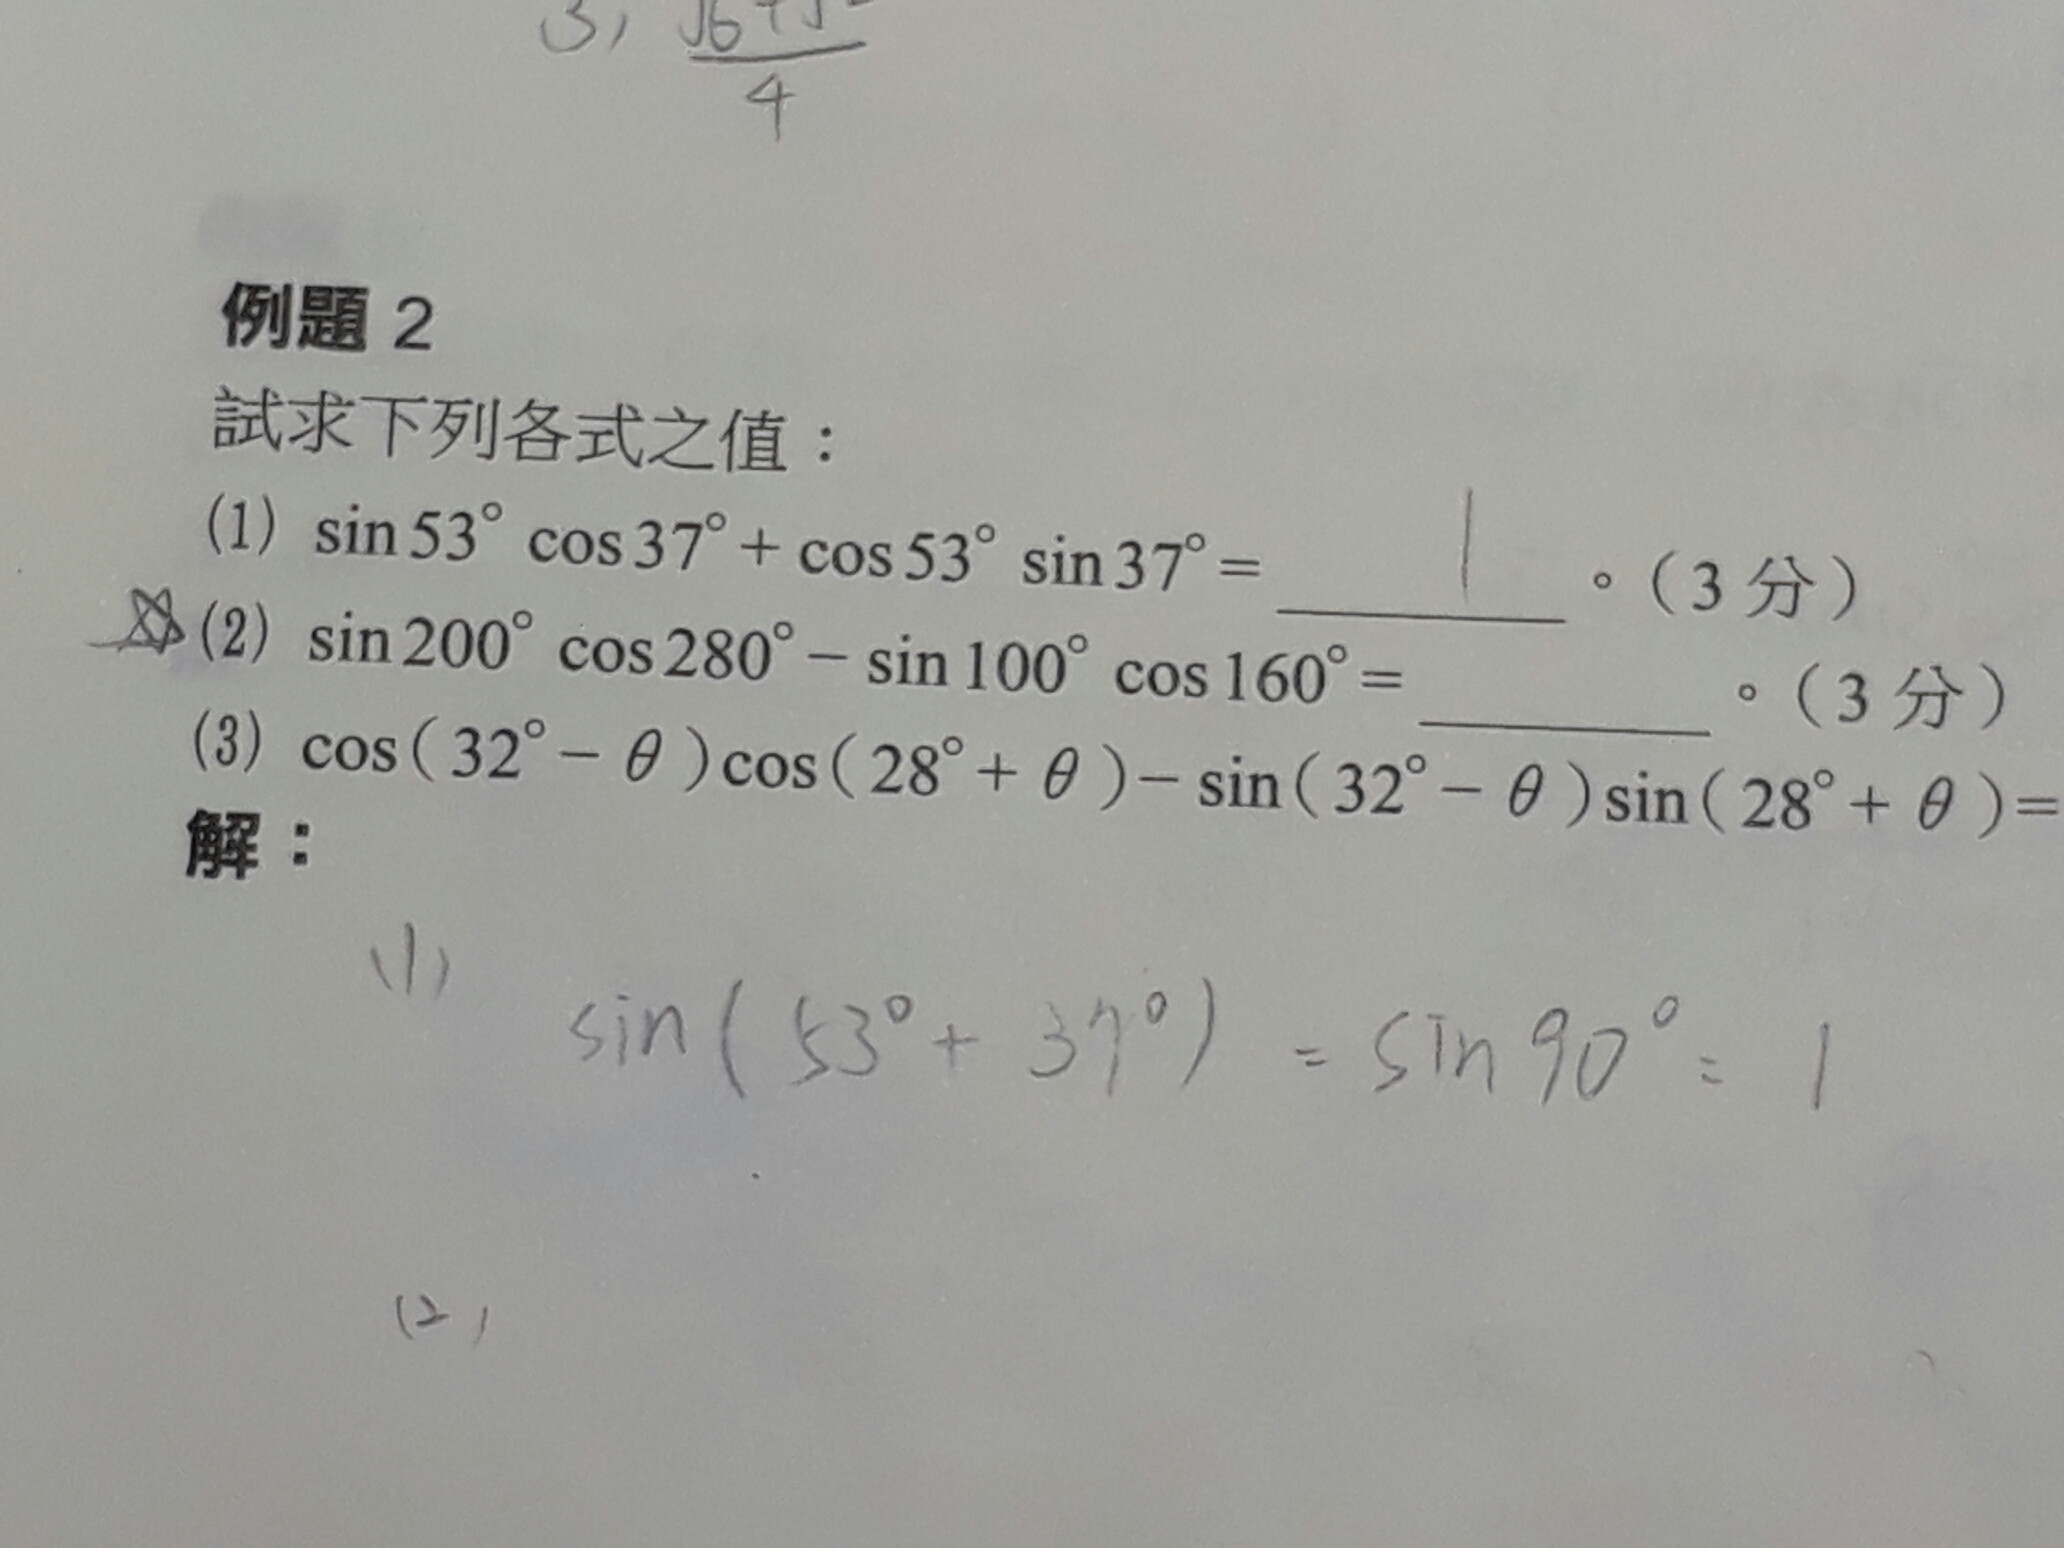 3) √6+√
4
例題 2
試求下列各式之值：
(1) sin53° cos37°+cos53° sin37°= 1 。(3 分)
☆(2) sin200° cos280°−sin100° cos160°=______。(3 分)
(3) cos(32°−θ)cos(28°+θ)−sin(32°−θ)sin(28°+θ)=
解：
(1)
sin(53°+37°) = sin90° = 1
(2)